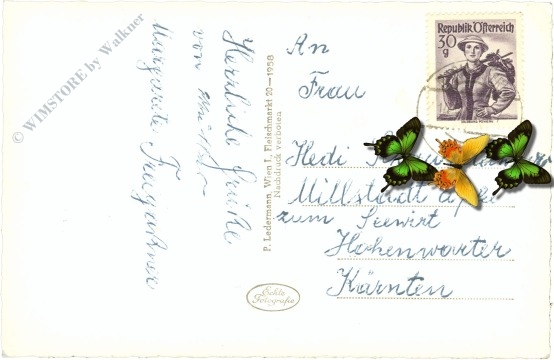 © WIMSTORE by Walkner
Herzliche Grüße
von
Margarete
P. Ledermann, Wien I., Fleischmarkt 20—1958
Nachdruck verboten
Echte
Fotografie
Republik Österreich
30
g
An
Frau
Hedi
Millstadt a/See
zum Seewirt
Hohenwarter
Kärnten